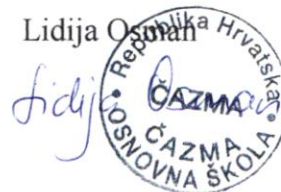 Lidija Osman
Lidija Osman
Republika Hrvatska
ČAZMA
ČAZMA
OSNOVNA ŠKOLA